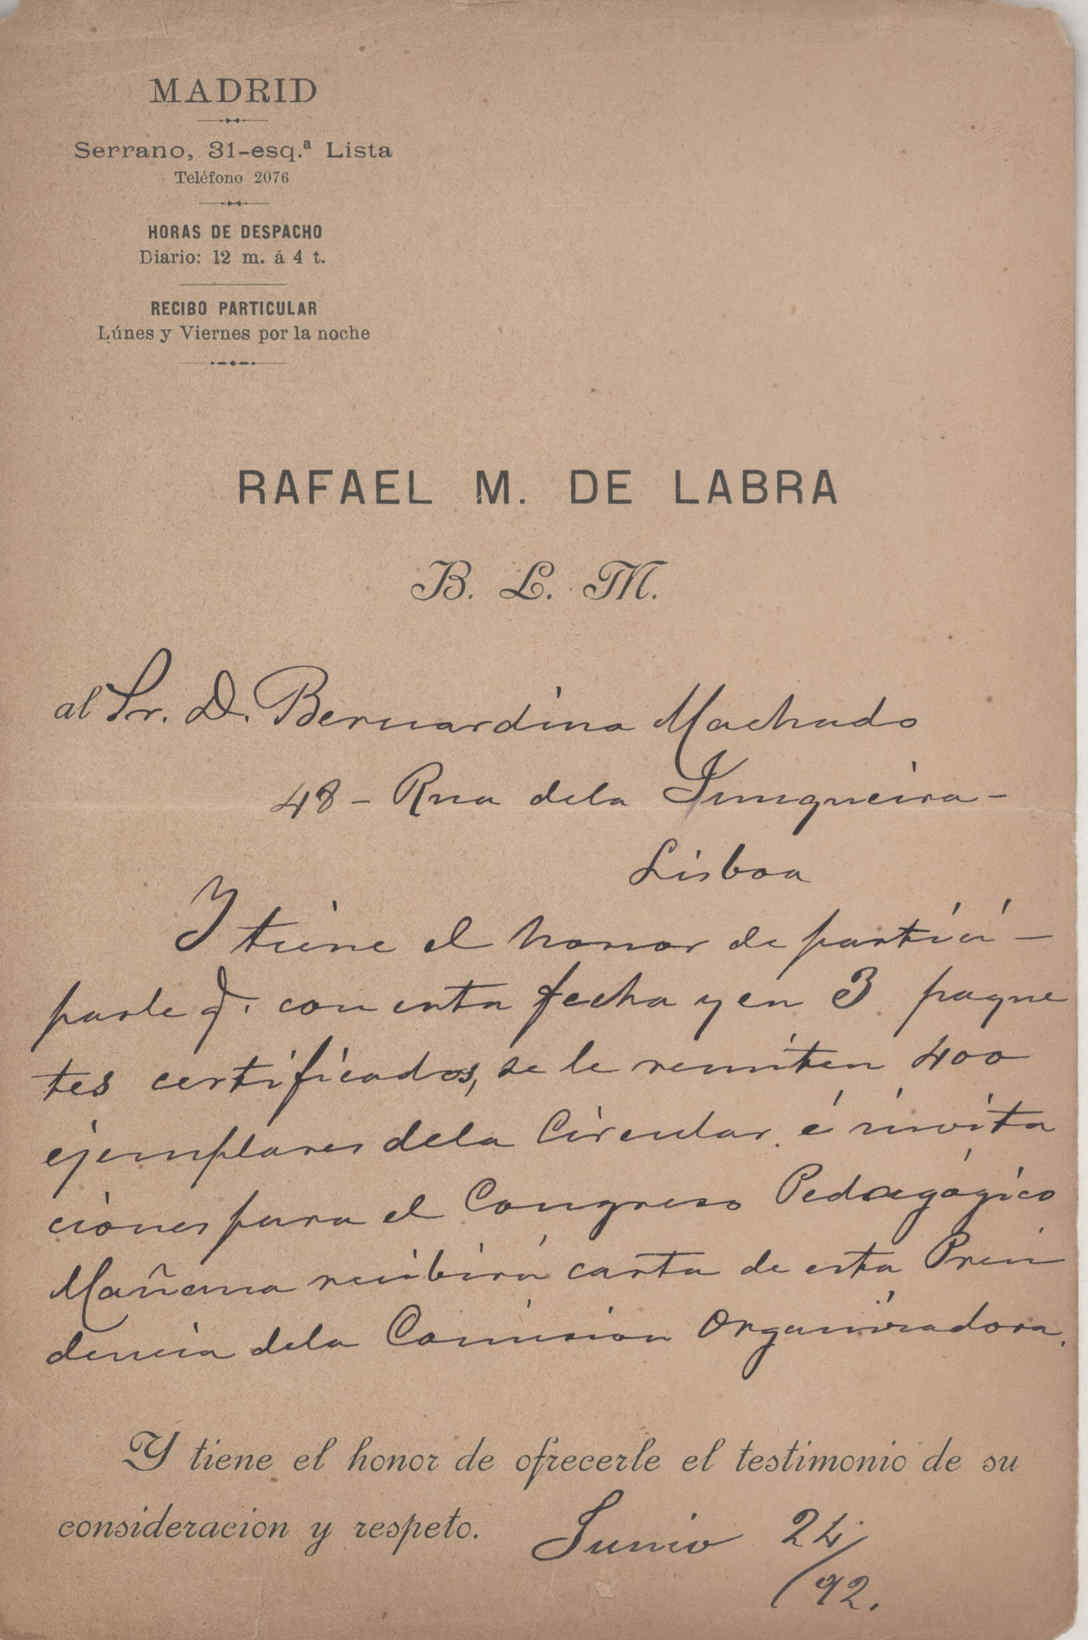 MADRID
Serrano, 31-esq.ª Lista
Teléfono 2076
HORAS DE DESPACHO
Diario: 12 m. á 4 t.
RECIBO PARTICULAR
Lúnes y Viernes por la noche
RAFAEL M. DE LABRA
B. L. M.
al Sr. D. Bernardino Machado
48 - Rua dela Junqueira -
Lisboa
Y tiene el honor de partici -
parle q. con esta fecha y en 3 paque
tes certificados, se le remiten 400
ejemplares dela Circular é invita
ciones para el Congreso Pedagógico
Mañana recibirá carta de esta Presi
dencia dela Comision Organizadora.
Y tiene el honor de ofrecerle el testimonio de su
consideracion y respeto.
Junio 24/92.